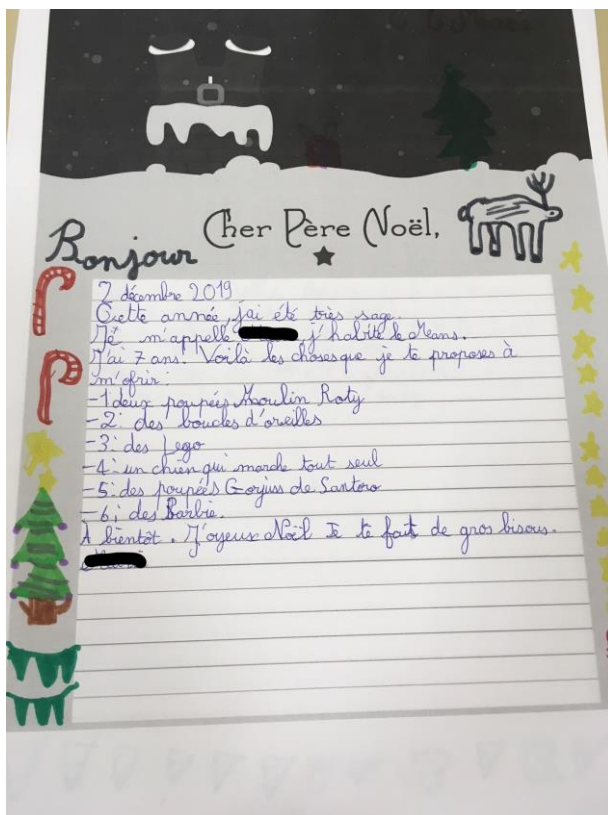 Cher Père Noël,
Bonjour
2 décembre 2019
Cette année, j'ai été très sage.
Je m'appelle j'habite le Mans.
J'ai 7 ans. Voilà les choses que je te proposes à
m'ofrir :
-1: deux poupéis Moulin Roty
-2: des boucles d'oreilles
-3: des Lego
-4: un chien qui marche tout seul
-5: des poupées Gorjuss de Santoro
-6: des Barbie.
A bientôt. J'oyeux Noël Je te fait de gros bisous.